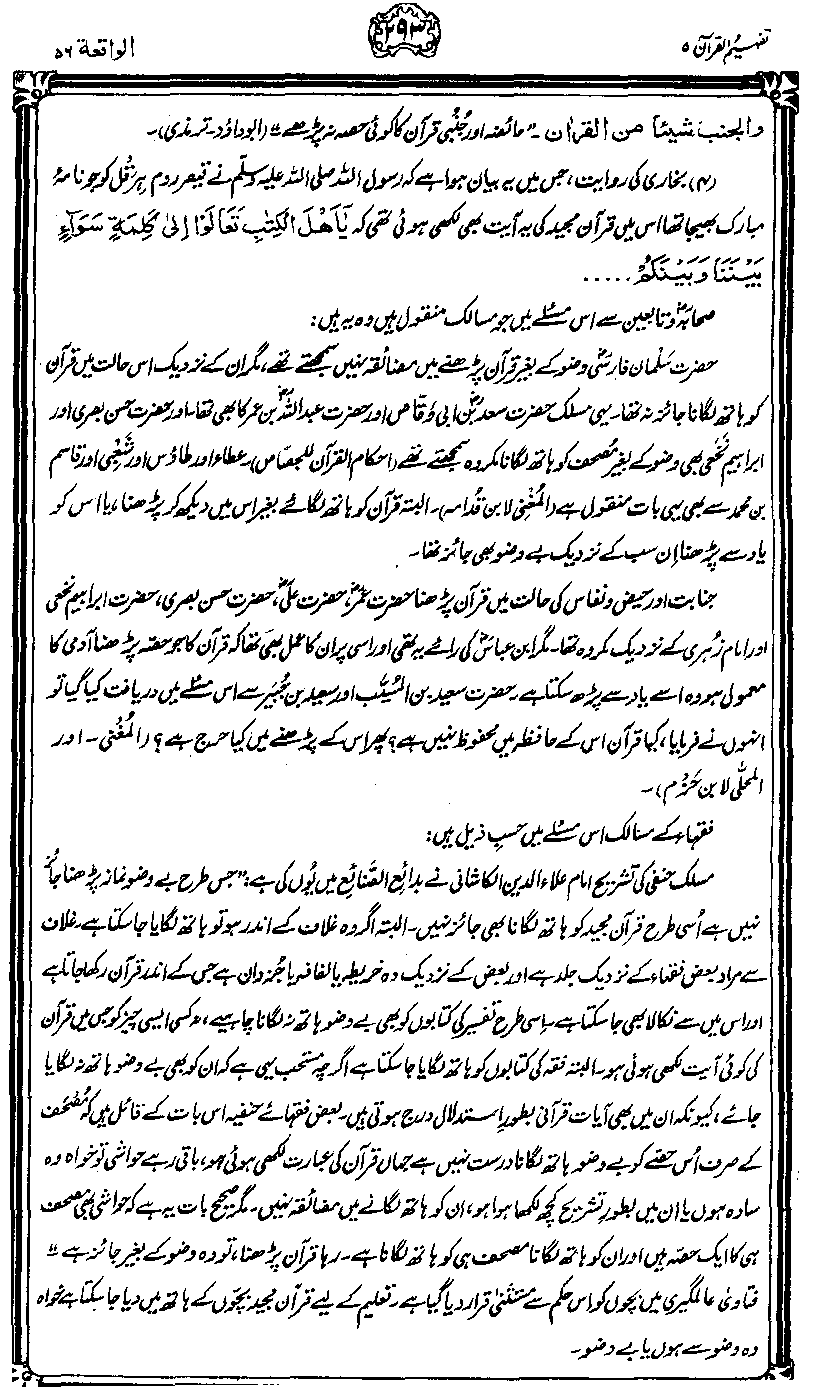 تفہیم القرآن ۵
۲۹۳
الواقعۃ ۵۶
والجنب شیئا من القراٰن ۔ "حائضہ اور جُنبی قرآن کا کوئی حصہ نہ پڑھے" (ابوداؤد۔ ترمذی)۔
(۴) بخاری کی روایت، جس میں یہ بیان ہوا ہے کہ رسول اللہ صلی اللہ علیہ وسلم نے قیصر روم ہرقُل کو جو نامۂ
مبارک بھیجا تھا اس میں قرآن مجید کی یہ آیت بھی لکھی ہوئی تھی کہ يٰٓاَهْلَ الْكِتٰبِ تَعَالَوْا اِلٰى كَلِمَةٍ سَوَآءٍۢ
بَيْنَنَا وَبَيْنَكُمْ .....
صحابہؓ و تابعین سے اس مسئلے میں جو مسالک منقول ہیں وہ یہ ہیں:
حضرت سلمان فارسیؓ وضو کے بغیر قرآن پڑھنے میں مضائقہ نہیں سمجھتے تھے، مگر ان کے نزدیک اس حالت میں قرآن
کو ہاتھ لگانا جائز نہ تھا۔ یہی مسلک حضرت سعدؓ بن ابی وَقّاص اور حضرت عبداللہؓ بن عمر کا بھی تھا۔ اور حضرت حسن بصری اور
ابراہیم نَخَعی بھی وضو کے بغیر مُصحف کو ہاتھ لگانا مکروہ سمجھتے تھے (احکام القرآن للجصاص)۔ عطاء اور طاؤس اور شَعْبِی اور قاسم
بن محمد سے بھی یہی بات منقول ہے (المُغْنِی لابن قُدامہ)۔ البتہ قرآن کو ہاتھ لگائے بغیر اس میں دیکھ کر پڑھنا، یا اس کو
یاد سے پڑھنا اِن سب کے نزدیک بے وضو بھی جائز تھا۔
جنابت اور حیض و نفاس کی حالت میں قرآن پڑھنا حضرت عمرؓ، حضرت علیؓ، حضرت حسن بصری، حضرت ابراہیم نَخَعی
اور امام زُہری کے نزدیک مکروہ تھا۔ مگر ابن عباسؓ کی رائے یہ تھی اور اسی پر ان کا عمل بھی تھا کہ قرآن کا جو حصّہ پڑھنا آدمی کا
معمول ہو وہ اسے یاد سے پڑھ سکتا ہے۔ حضرت سعید بن المُسَیَّب اور سعید بن جُبَیر سے اس مسئلے میں دریافت کیا گیا تو
انہوں نے فرمایا، کیا قرآن اس کے حافظہ میں محفوظ نہیں ہے؟ پھر اس کے پڑھنے میں کیا حرج ہے؟ (المُغْنی۔ اور
المحلّٰی لابن حَزْم)۔
فقہاء کے مسالک اس مسئلے میں حسبِ ذیل ہیں:
مسلک حنفی کی تشریح امام علاء الدین الکاشانی نے بدائع الصّنائع میں یُوں کی ہے: "جس طرح بے وضو نماز پڑھنا جائز
نہیں ہے اُسی طرح قرآن مجید کو ہاتھ لگانا بھی جائز نہیں۔ البتہ اگر وہ غلاف کے اندر ہو تو ہاتھ لگایا جا سکتا ہے۔ غلاف
سے مراد بعض فقہاء کے نزدیک جلد ہے اور بعض کے نزدیک وہ خریطہ یا لفافہ یا جُزدان ہے جس کے اندر قرآن رکھا جاتا ہے
اور اس میں سے نکالا بھی جا سکتا ہے۔ اِسی طرح تفسیر کی کتابوں کو بھی بے وضو ہاتھ نہ لگانا چاہیے، نہ کسی ایسی چیز کو جس میں قرآن
کی کوئی آیت لکھی ہوئی ہو۔ البتہ فقہ کی کتابوں کو ہاتھ لگایا جا سکتا ہے اگرچہ مستحب یہی ہے کہ ان کو بھی بے وضو ہاتھ نہ لگایا
جائے، کیونکہ ان میں بھی آیات قرآنی بطورِ استدلال درج ہوتی ہیں۔ بعض فقہائے حنفیہ اس بات کے قائل ہیں کہ مُصحَف
کے صرف اُس حصّے کو بے وضو ہاتھ لگانا درست نہیں ہے جہاں قرآن کی عبارت لکھی ہوئی ہو، باقی رہے حواشی تو خواہ وہ
سادہ ہوں یا ان میں بطورِ تشریح کچھ لکھا ہوا ہو، ان کو ہاتھ لگانے میں مضائقہ نہیں۔ مگر صحیح بات یہ ہے کہ حواشی بھی مصحف
ہی کا ایک حصّہ ہیں اور ان کو ہاتھ لگانا مصحف ہی کو ہاتھ لگانا ہے۔ رہا قرآن پڑھنا، تو وہ وضو کے بغیر جائز ہے"
فتاویٰ عالمگیری میں بچوں کو اس حکم سے مستثنیٰ قرار دیا گیا ہے۔ تعلیم کے لیے قرآن مجید بچّوں کے ہاتھ میں دیا جا سکتا ہے خواہ
وہ وضو سے ہوں یا بے وضو۔